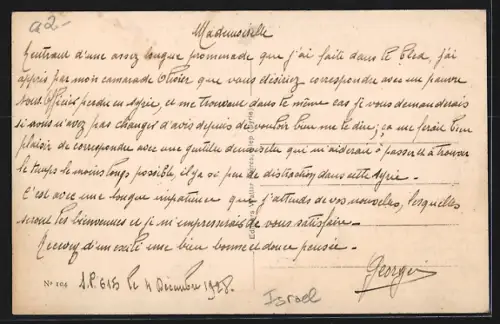 a2-
Mademoiselle
Rentrant d'une assez longue promenade que j'ai faite dans le bled, j'ai
appris par mon camarade que vous désiriez correspondre avec un pauvre
sous officier perdu en Syrie, et me trouvant dans le même cas je vous demanderais
si vous n'avez pas changé d'avis depuis de vouloir bien me le dire; ça me ferait bien
plaisir de correspondre avec une gentille demoiselle qui m'aiderait à passer et à trouver
le temps le moins long possible, il y a si peu de distraction dans cette Syrie.
C'est avec une longue impatience que j'attends de vos nouvelles, lesquelles
seront les bienvenues et je m'empresserais de vous satisfaire.
Recevez d'un exilé une bien bonne et douce pensée.
Georges
No 101 S.P. 615 le 4 Décembre 1928.
Israel